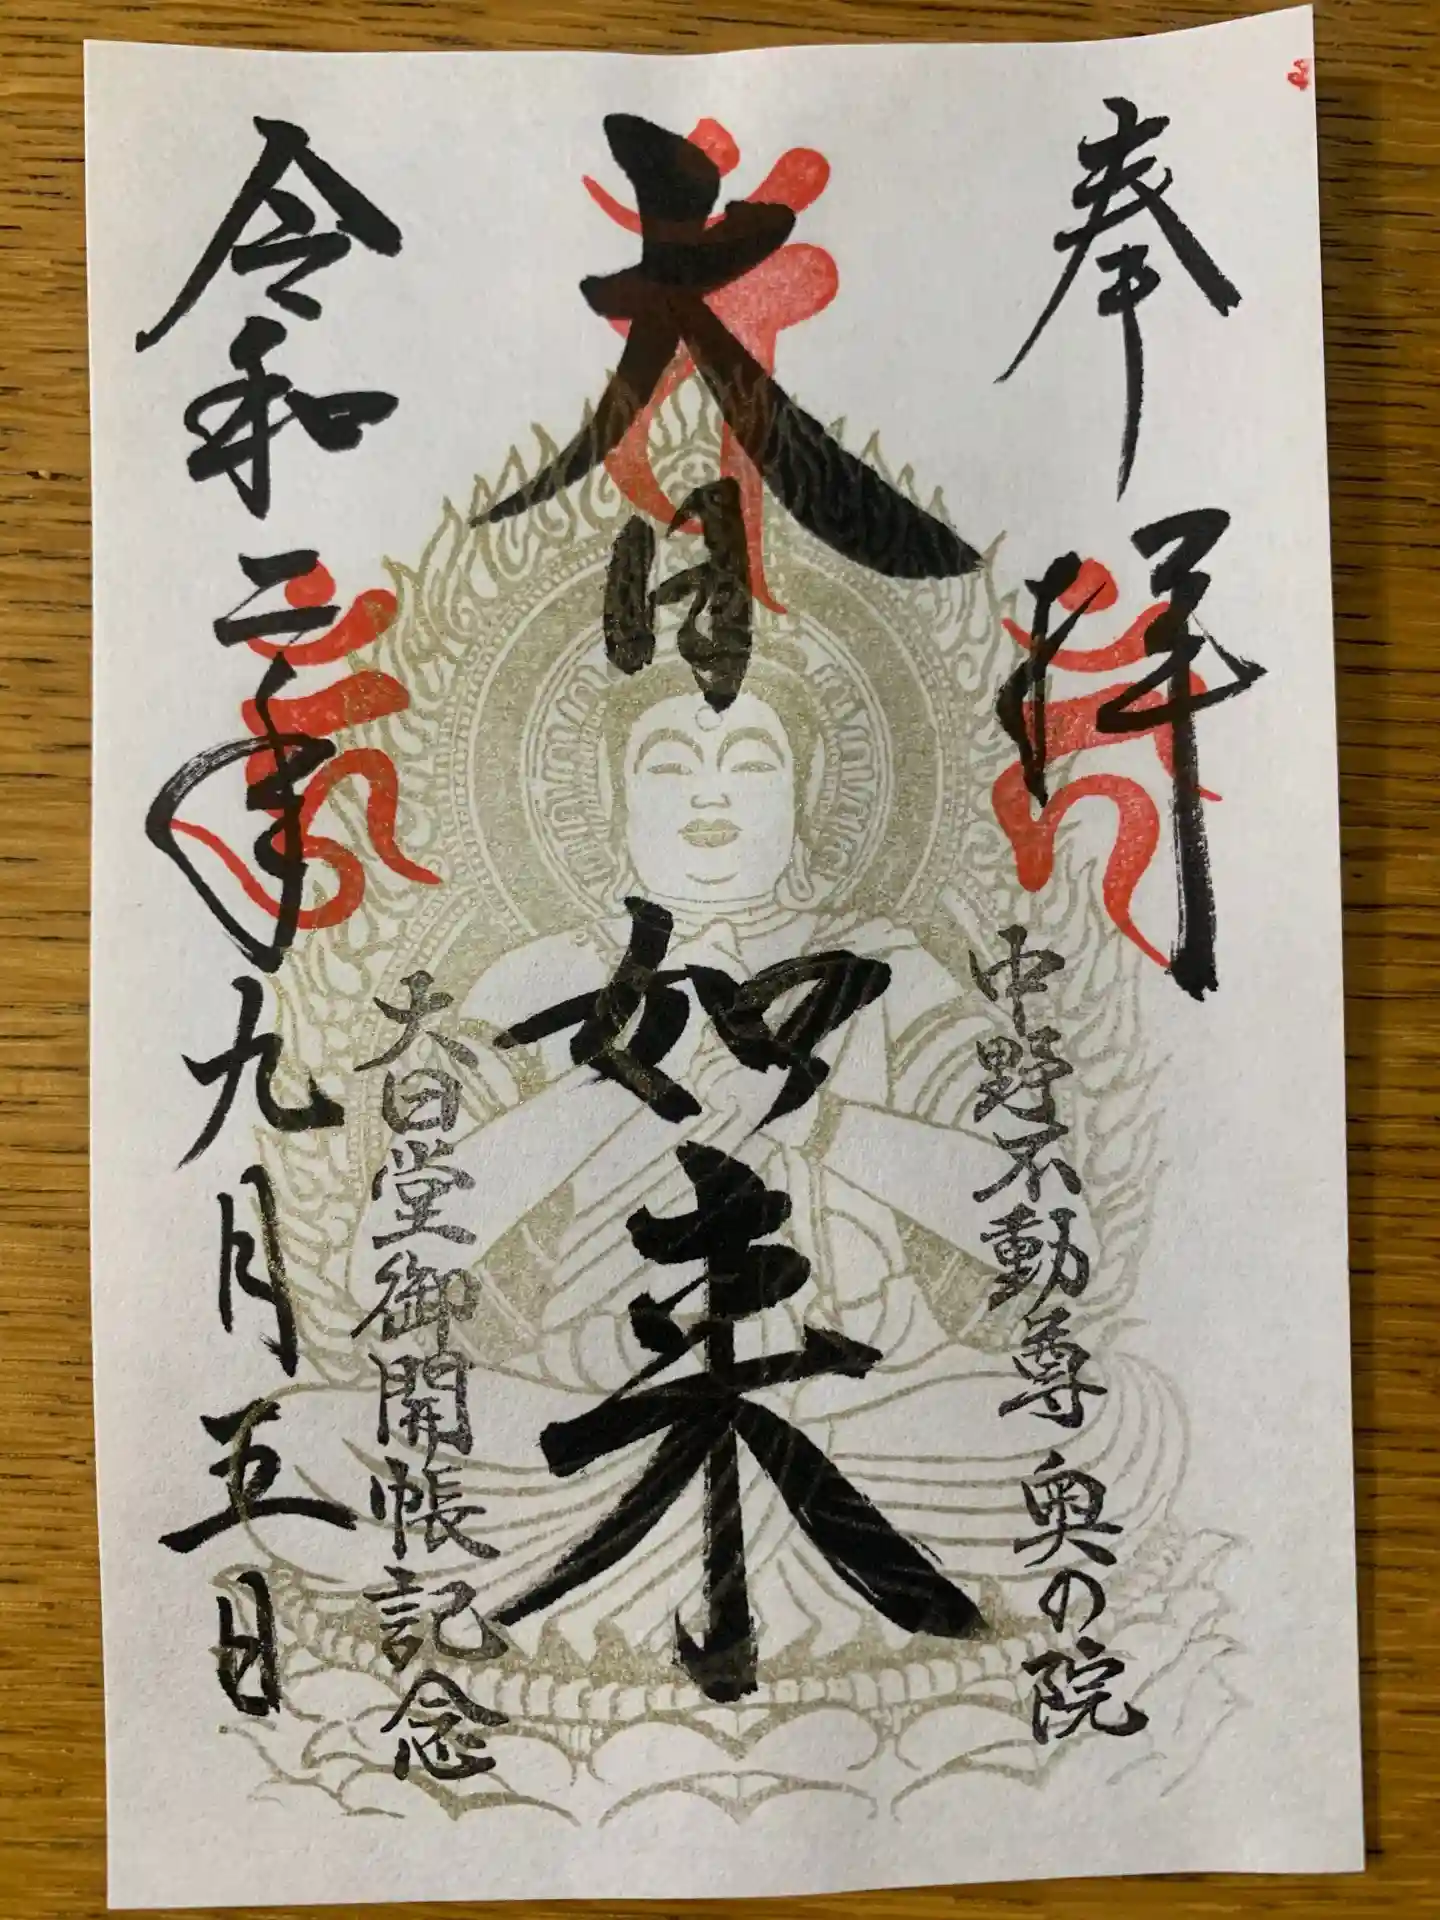 奉拝
中野不動尊 奥の院
大日如来
大日堂御開帳記念
令和二年九月五日